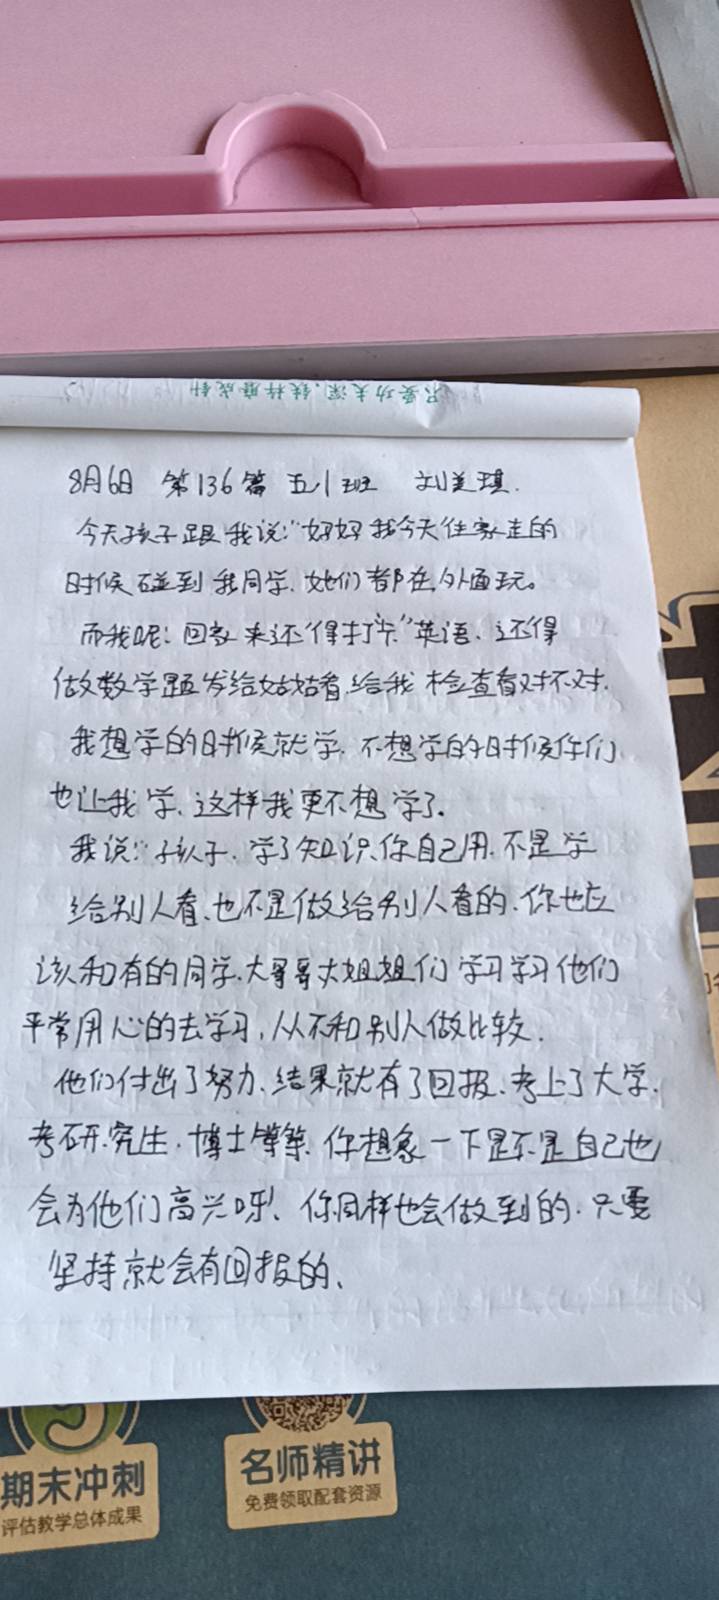 只要功夫深,铁杵磨成针
8月6日 第136篇 五1班 刘美琪.
今天孩子跟我说:"好好我今天往家走的
时候碰到我同学、她们都在外面玩。
而我呢:回家来还"得打卡"英语、还得
做数学题发给姑姑看、给我检查看对不对.
我想学的时候就学、不想学的时候你们
也让我学、这样我更不想学了.
我说:"孩子、学了知识、你自己用、不是学
给别人看、也不是做给别人看的、你也应
该和有的同学、大哥哥大姐姐们学习学习他们
平常用心的去学习,从不和别人做比较.
他们付出了努力、结果就有了回报、考上了大学、
考研.究生.博士等等、你想象一下是不是自己也
会为他们高兴呀!、你同样也会做到的.只要
坚持就会有回报的、
期末冲刺
评估教学总体成果
名师精讲
免费领取配套资源